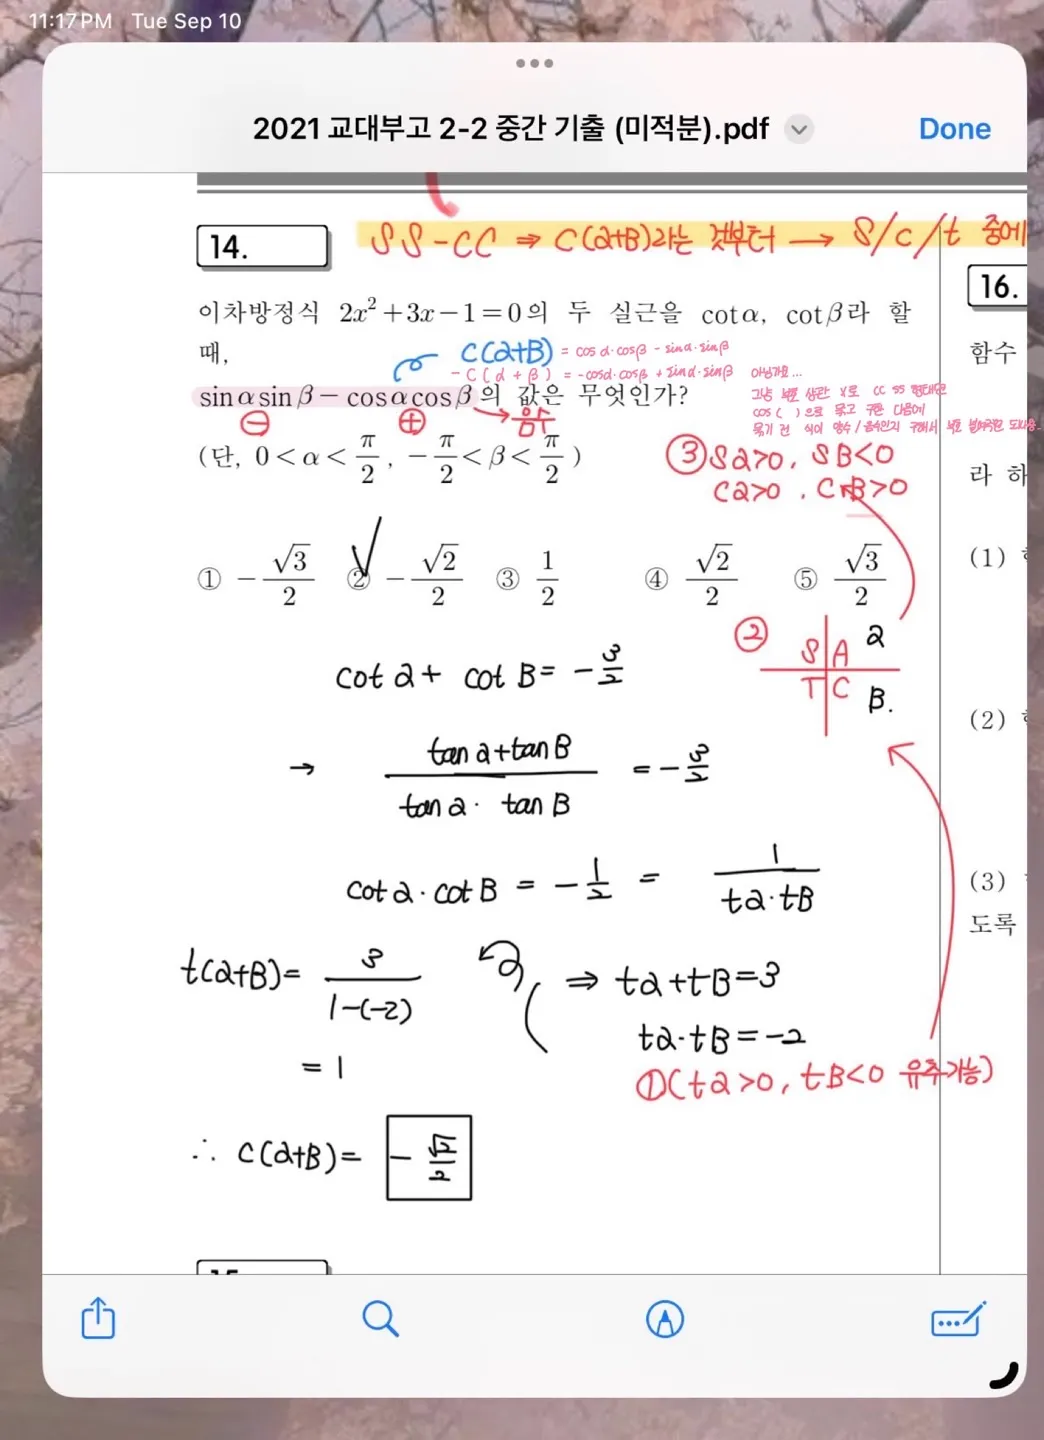 11:17 PM Tue Sep 10
2021 교대부고 2-2 중간 기출 (미적분).pdf
Done
14.
SS-CC ⇒ C(α+B)라는 것부터 → S/c/t 중에
이차방정식 2x²+3x−1=0의 두 실근을 cotα, cotβ라 할
때,
C(α+B) = cosα·cosβ − sinα·sinβ
−C(α+β) = −cosα·cosβ + sinα·sinβ 아닌가요...
sinα sinβ − cosα cosβ의 값은 무엇인가?
그냥 부호 상관 X로 CC SS 형태면
cos( )으로 묶고 구한 다음에
묶기 전 식이 양수/음수인지 구해서
⊖ ⊕ → 음수
(단, 0<α<π/2, −π/2<β<π/2)
③ Sα>0, SB<0
Cα>0, CB>0
① −√3/2 ② −√2/2 ③ 1/2 ④ √2/2 ⑤ √3/2
② S A α
T C B.
cot α + cot B = −3/2
→ (tan α + tan B)/(tan α · tan B) = −3/2
cot α · cot B = −1/2 = 1/(tα·tB)
t(α+B) = 3/(1−(−2))
⇒ tα+tB=3
tα·tB=−2
= 1
①(tα>0, tB<0 유추가능)
∴ C(α+B) = −√2/2
16.
함수
라 하
(1)
(2)
(3)
도록